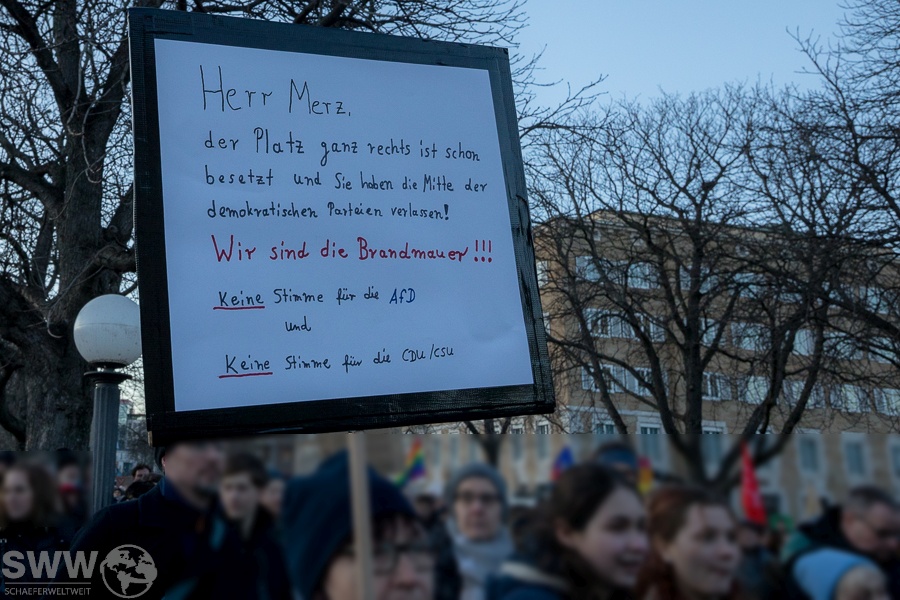 Herr Merz,
der Platz ganz rechts ist schon
besetzt und Sie haben die Mitte der
demokratischen Parteien verlassen!
Wir sind die Brandmauer!!!
Keine Stimme für die AfD
und
Keine Stimme für die CDU/CSU
SWW
SCHAEFERWELTWEIT